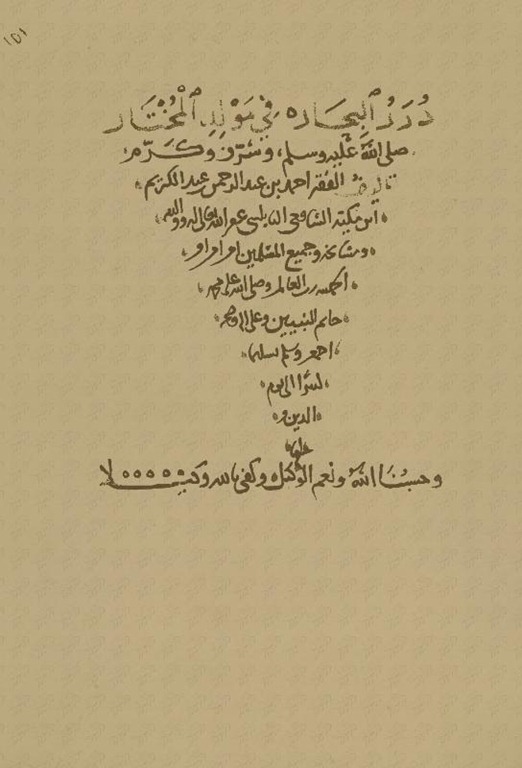 ١٥١
دُرَرُ البِحَاره فِي مَوْلِدِ المُخْتَار
صلى الله عليه وسلم، وشرّف وكَرّم
تاليف الفقير احمد بن عبد الرحمن بن عبد الكريم
ابن مكية الشافعي النابلسي غفر الله له ولوالديه
ومشايخه وجميع المسلمين امر امر او
الحمد لله رب العالمين وصلى الله على محمد
خاتم النبيين وعلى اله وصحبه
اجمعين وسلم تسليما
كثيرا الى يوم
الدين و
وحسبنا الله ونعم الوكيل وكفى بالله وكيلا